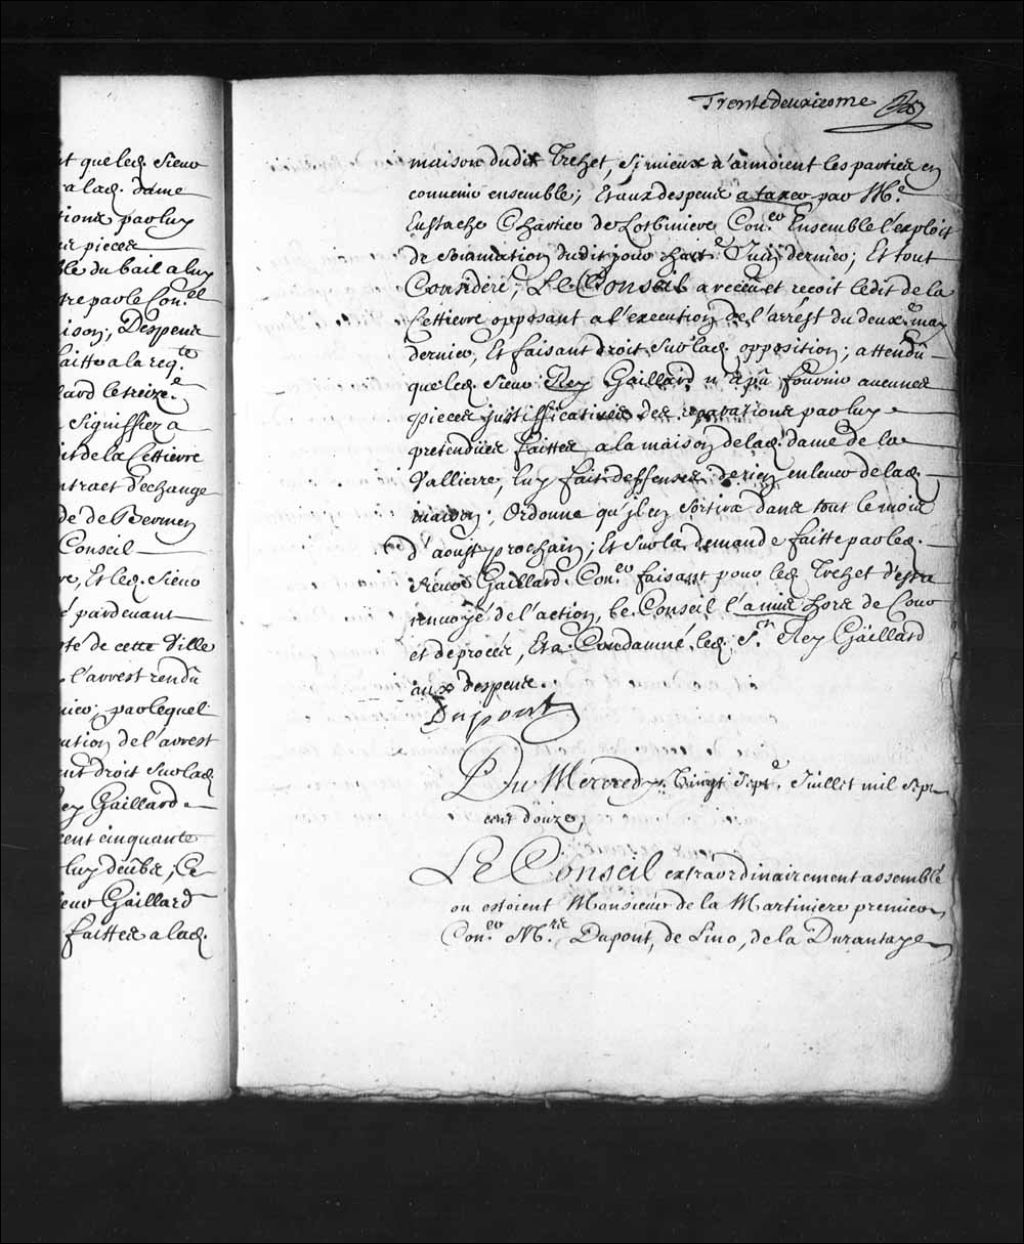 nt que led. Sieur
a lad. dame
tions par luy
es pieces
ble du bail a luy
tre par le Con.el
ison; Despens
faitte a la req.te
lard le treize.e
Signiffiez a
it de la Cettierre
ntract d'echange
dé de Bermen
Conseil
re, Et led. Sieur
é pardevant
té de cette Ville
l'arrest rendû
nier; par lequel
ution de l'arrest
nt droit Sur lad.
ey Gaillard
cent cinquante
luy deübs; Ce
ieur Gaillard
faittes a lad.
Trentedeuxieme
maison dudit Trehet, Si mieux n'aimoient les parties en
convenir ensemble; Et aux despens a taxer par M.e
Eustache Chartier de Lotbiniere Con.er Ensemble l'exploit
de Signiation dudit jour huit.e Juin dernier; Et tout
Consideré; Le Conseil a receu et recoit ledit de la
Cettierre opposant a l'execution de l'arrest du deux.e may
dernier, Et faisant droit Sur lad. opposition; attendû
que led. Sieur Rey Gaillard n'a pû fournir aucunes
pieces justifficatives des reparations par luy
pretendües faittes a la maison de lad. dame de la
Vallierre, luy fait deffenses de rien enlever de lad.
maison; Ordonne qu'jl en Sortira dans tout le mois
d'aoust prochain; Et Sur la demande faitte par led.
Sieur Gaillard Con.er faisant pour led. Trehet d'estre
renvoyé de l'action, le Conseil l'a mis hors de Cour
et de procés, Et a Condamné led. S.r Rey Gaillard
aux despens.
Dupont
Du Mercredy Vingt Sept.e Juillet mil Sept
cent douze,
LE Conseil extraordinairement assemblé
ou estoient Monsieur de la Martiniere premier
Con.er M.rs Dupont, de Lino, de la Durantaye